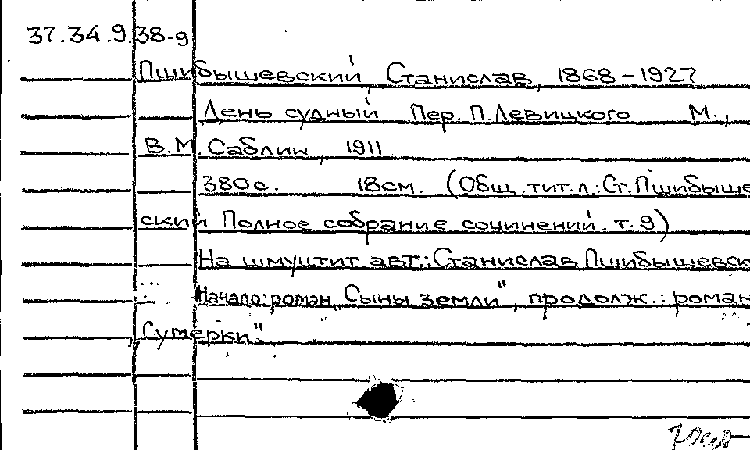 37.34.9.38-9
Пшибышевский, Станислав, 1868-1927
День судный Пер. П.Левицкого М.,
В.М.Саблин, 1911
380с. 18см. (Общ.тит.л.:Ст.Пшибыше
ский Полное собрание сочинений. т.9)
На шмуцтит авт.:Станислав Пшибышевск
Начало:роман „Сыны земли", продолж.:роман
„Сумерки".